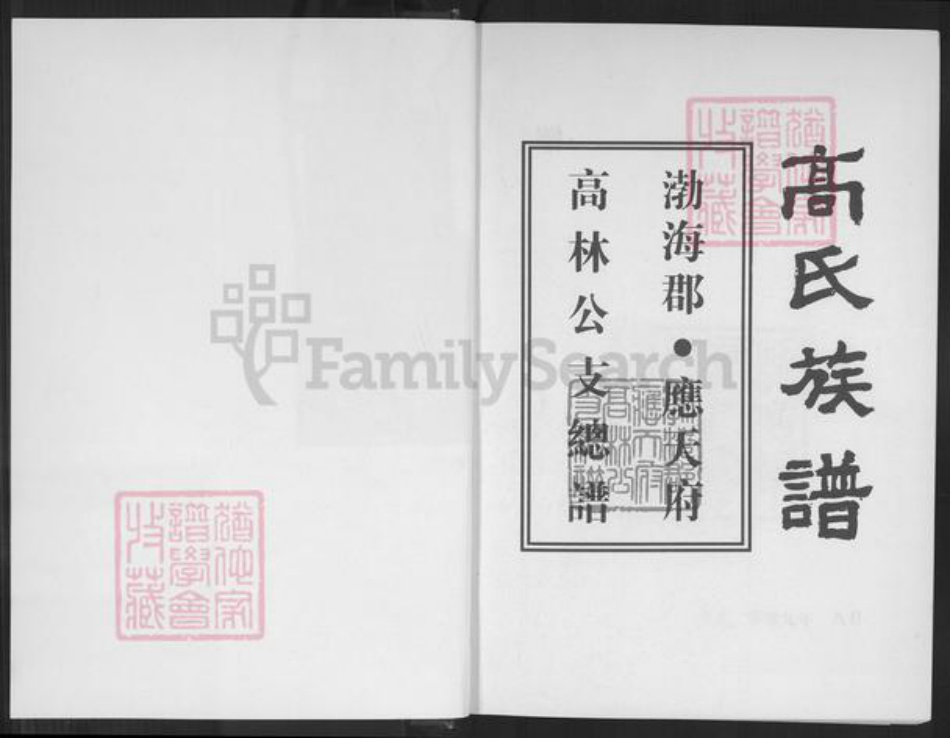 高氏族譜
渤海郡•應天府
高林公支總譜
猶他家
譜學會
收藏
FamilySearch
猶他家
譜學會
收藏